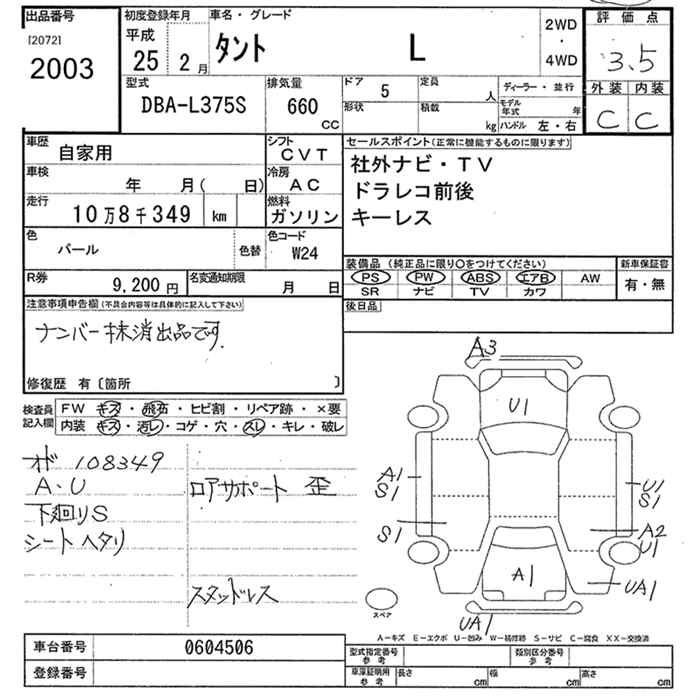 出品番号
[2072]
2003
初度登録年月
平成
25 2月
車名・グレード
タント L
2WD
・
4WD
評価点
3.5
外装 内装
C C
型式
DBA-L375S
排気量
660
CC
ドア 5
定員 人
形状
積載 kg
ディーラー・並行
モデル年式 年
ハンドル 左・右
車歴
自家用
シフト
CVT
車検
年 月( 日)
冷房
AC
走行
10万8千349 km
燃料
ガソリン
色
パール
色替
色コード
W24
R券
9,200円
名変通知期限
月 日
セールスポイント(正常に機能するものに限ります)
社外ナビ・TV
ドラレコ前後
キーレス
装備品(純正品に限り○をつけてください)
新車保証書
PS PW ABS エアB AW
SR ナビ TV カワ
有・無
後日品
注意事項申告欄(不具合内容等は具体的に記入して下さい)
ナンバー抹消出品です.
修復歴 有〔箇所 〕
検査員
記入欄
FW キズ・飛石・ヒビ割・リペア跡・×要
内装 キズ・汚レ・コゲ・穴・スレ・キレ・破レ
オド 108349
A・U
下廻りS
シートヘタリ
ロアサポート 歪
スタッドレス
A3
U1
A1
S1
S1
U1
S1
A2
U1
A1
UA1
UA1
スペア
A-キズ E-エクボ U-凹み W-板修跡 S-サビ C-腐食 XX-交換済
車台番号
0604506
登録番号
型式指定番号
参考
類別区分番号
参考
車庫証明用
参考
長さ cm
幅 cm
高さ cm